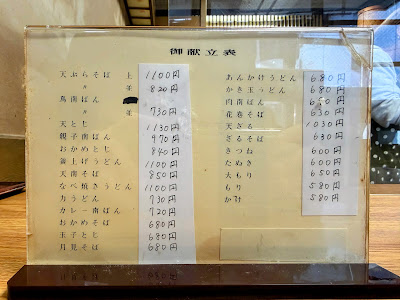 御献立表
天ぷらそば 上 1100円
〃 並 820円
鳥南ばん
〃 並 730円
天とじ 1130円
親子南ばん 970円
おかめとじ 840円
鍋上げうどん 1100円
天南そば 850円
なべ焼きうどん 1100円
力うどん 730円
カレー南ばん 720円
おかめそば 680円
玉子とじ 680円
月見そば 680円
あんかけうどん 680円
かき玉うどん 680円
肉南ばん 650円
花巻そば 630円
天ざる 1030円
ざるそば 630円
きつね 600円
たぬき 600円
大もり 650円
もり 580円
かけ 580円